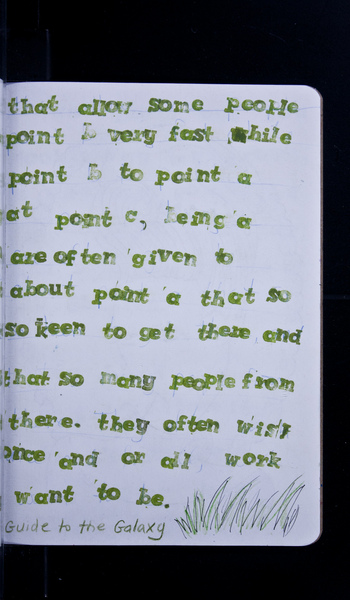 that allow some people
point b very fast while
point b to point a
at point c, being a
are often given to
about point a that so
so keen to get there and
that so many people from
there. they often wish
once and or all work
want to be.
Guide to the Galaxy